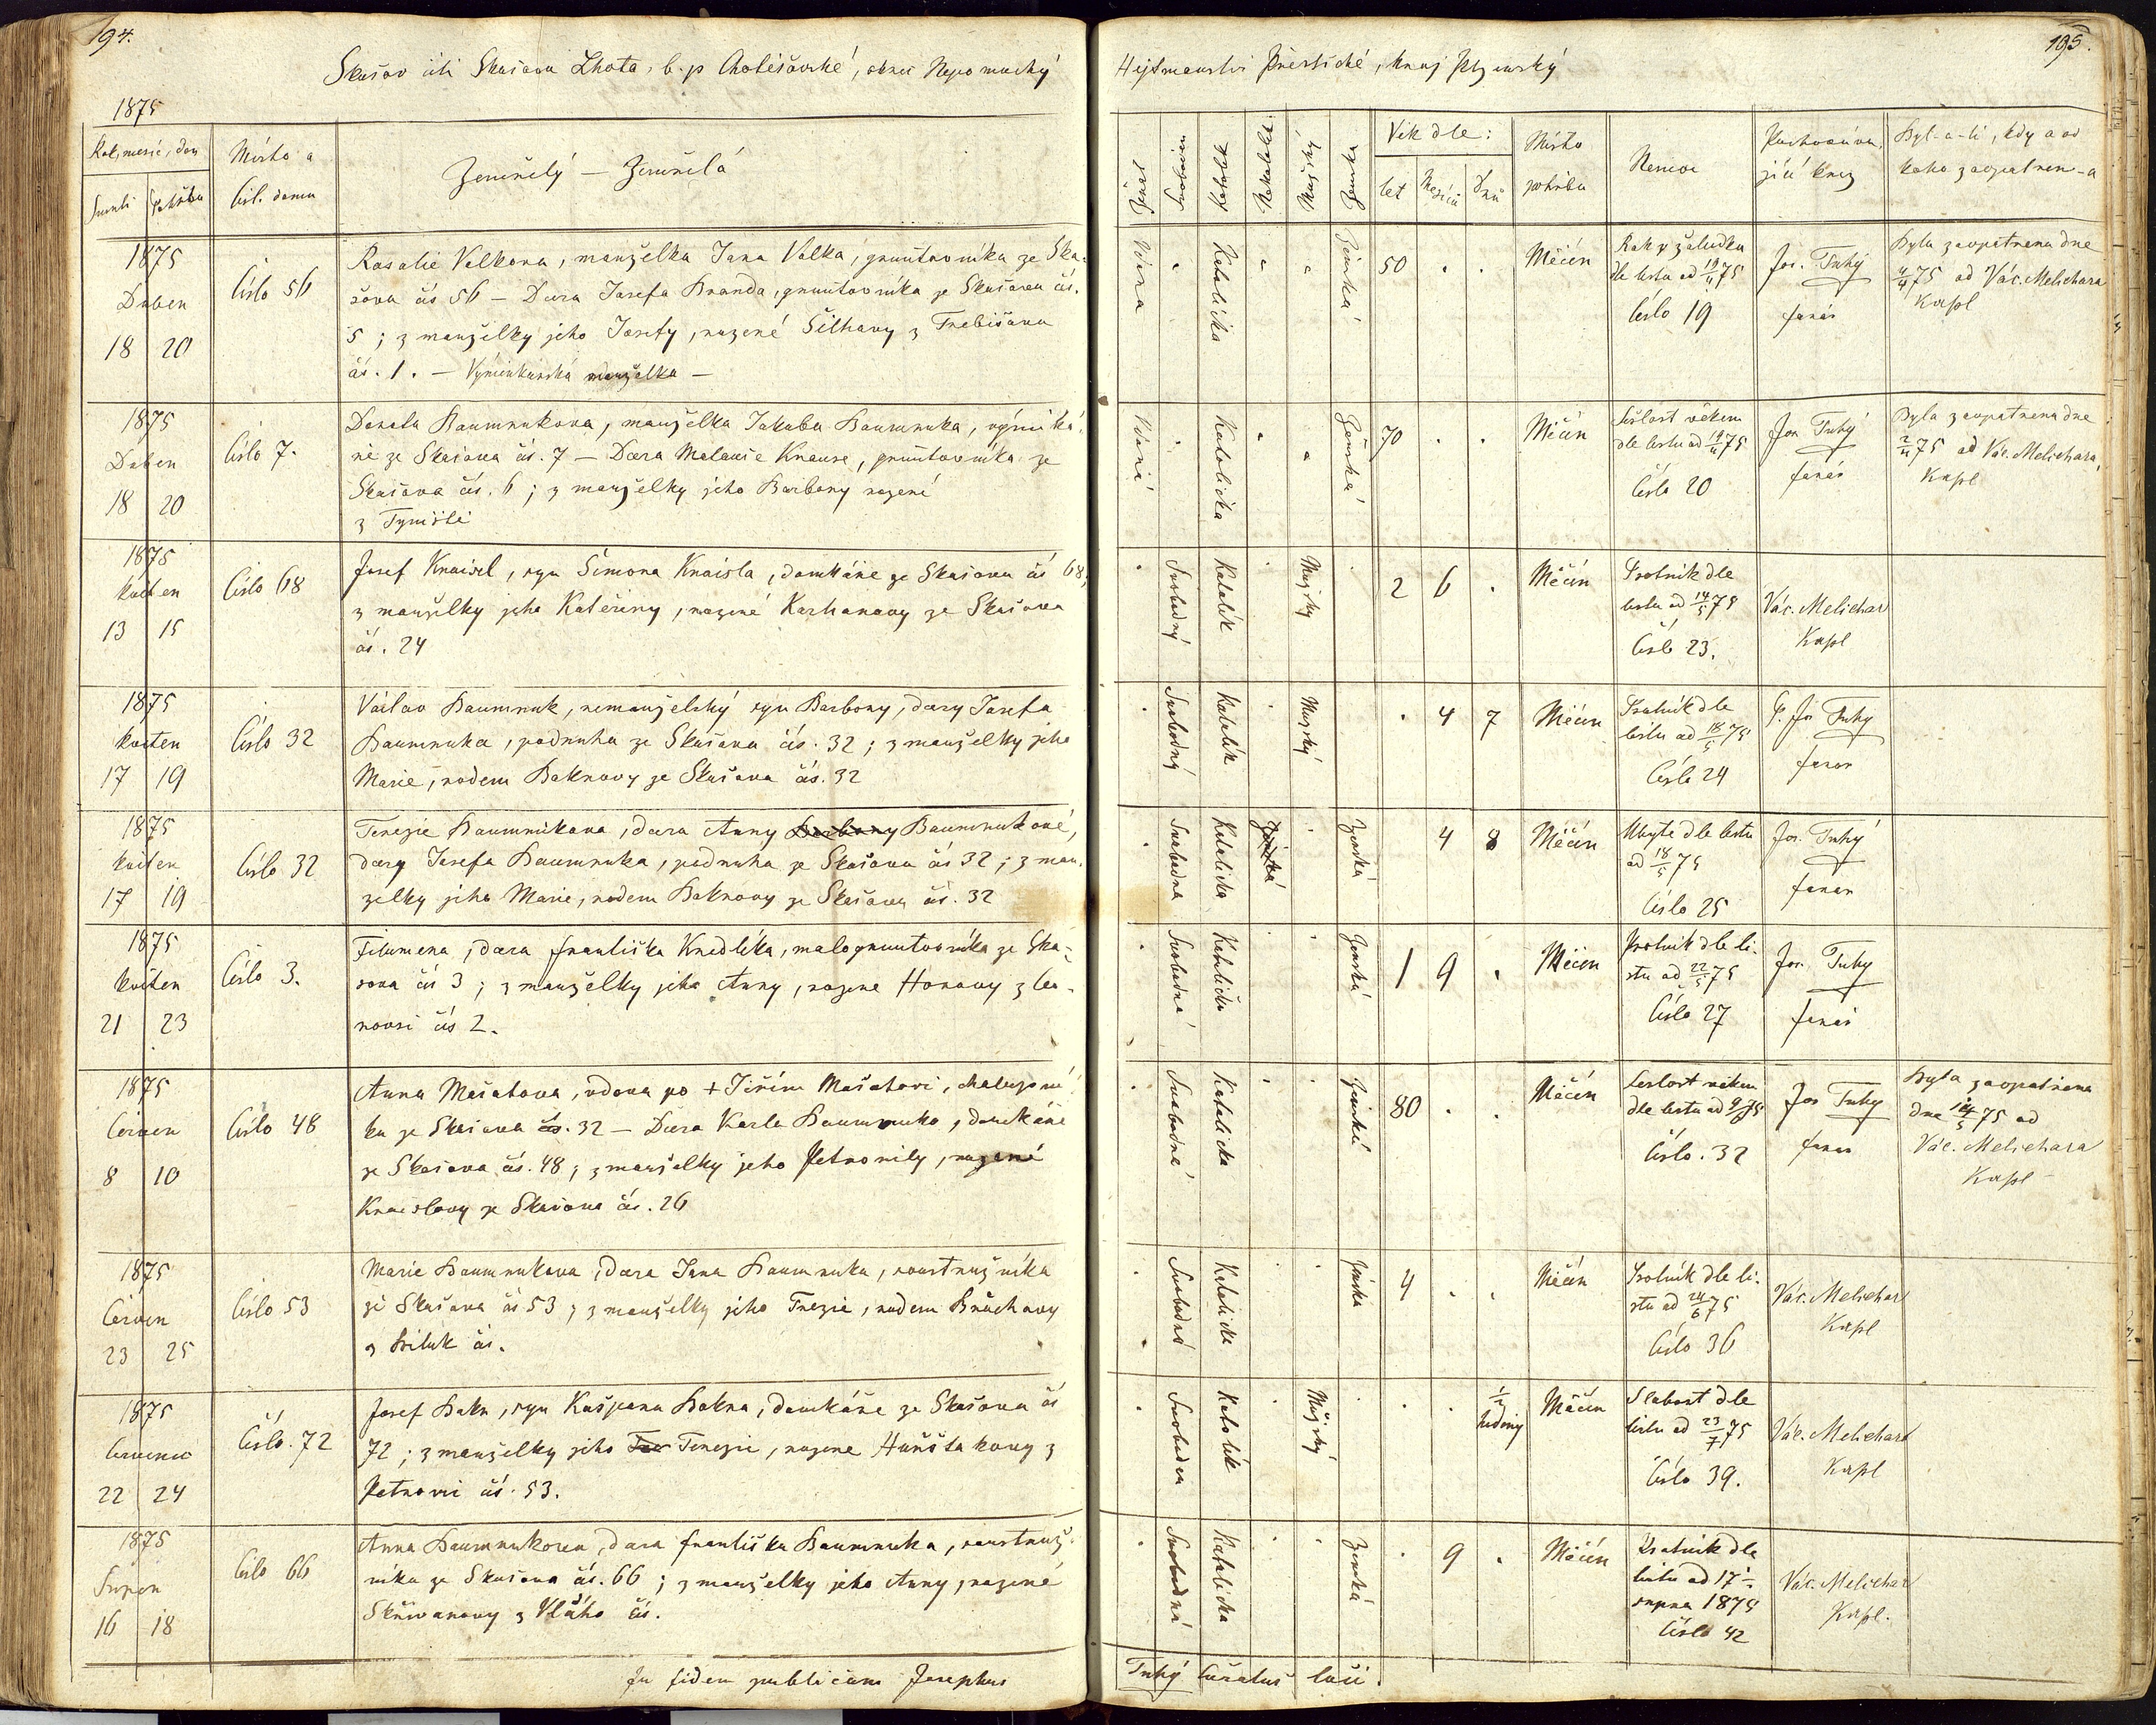 194.
Skašov čili Skašova Lhota, b. p. Chotěšovské, okres Nepomucký
1875
Rok, měsíc, den
Úmrtí
Pohřbu
Místo a
čísl. domu
Zemřelý — Zemřelá
1875
Duben
18 20
Číslo 56
Rosalie Valkova, manželka Jana Valka, gruntovníka ze Ska-
šova čís 56 — Dcera Josefa Branda, gruntovníka ze Skašova čís.
5; z manželky jeho Josefy, rozené Šilhavy z Třebišova
čís. 1. — Výminkářská manželka —
1875
Duben
18 20
Číslo 7.
Dorota Baumrukova, manželka Jakuba Baumruka, výminká-
ře ze Skašova čís. 7 — Dcera Knause, gruntovníka ze
Skašova čís. 6; z manželky jeho Barbory rozené
z Týniště
1875
květen
13 15
Číslo 68
Josef Knaisl, syn Šimona Knaisla, domkáře ze Skašova čís 68,
z manželky jeho Kateřiny, rozené Karhanovy ze Skašova
čís. 24
1875
květen
17 19
Číslo 32
Václav Baumruk, nemanželský syn Barbory, dcery Josefa
Baumruka, podruha ze Skašova čís. 32; z manželky jeho
Marie, rodem Baknovy ze Skašova čís. 32
1875
květen
17 19
Číslo 32
Terezie Baumrukova, dcera Anny Barbory Baumrukové,
dcery Josefa Baumruka, podruha ze Skašova čís 32; z man-
želky jeho Marie, rodem Baknovy ze Skašova čís. 32
1875
květen
21 23
Číslo 3.
Filumena, dcera Františka Knedlíka, malogruntovníka ze Ska-
šova čís 3; z manželky jeho Anny, rozene Honovy z
čís 2.
1875
Červen
8 10
Číslo 48
Anna Mašatova, vdova po + Jiřím Mašatovi, chalupní-
ku ze Skašova čís. 32 — Dcera Karla Baumruka, domkáře
ze Skašova čís. 48; z manželky jeho Petronily, rozené
Knaislovy ze Skašova čís. 26
1875
Červen
23 25
Číslo 53
Marie Baumrukova, dcera Jana Baumruka, soustružníka
ze Skašova čís 53; z manželky jeho Trezie, rodem Brůchovy
z Biluk čís.
1875
Červenec
22 24
Číslo. 72
Josef Bakn, syn Kašpara Bakna, domkáře ze Skašova čís
72; z manželky jeho Ter Terezie, rozene z
Petrovic čís. 53.
1875
Srpen
16 18
Číslo 66
Anna Baumrukova, dcera Františka Baumruka, soustruž-
níka ze Skašova čís. 66; z manželky jeho Anny, rozené
Skřivanovy z Vlčího čís.
In fidem publicam Josephus
195.
Hejtmanství Přeštické, kraj Plzenský
Svobodný
Katolík
Nekatolík
Mužský
Ženská
Věk dle:
let
Měsíců
Dnů
Místo
pohřbu
Nemoc
Pochováva-
jící kněz
Byl-a-li, kdy a od
koho zaopatřen-a
Vdana
Katolička
Ženská
50
Měčín
Rak v žaludku
dle listu od 19/4 75
Číslo 19
Jos. Tuhý
farář
Byla zaopatřena dne
4/4 75 od Vác. Melichara
Kapl
Vdaná
Katolička
Ženská
70
Měčín
Sešlost věkem
dle listu od 19/4 75
Číslo 20
Jos. Tuhý
farář
Byla zaopatřena dne
2/4 75 od Vác. Melichara,
Kapl
Svobodný
Katolík
Mužský
2 6
Měčín
Psotník dle
listu od 14/5 75
Číslo 23.
Vác. Melichar
Kapl
Svobodný
Katolík
Mužský
4 7
Měčín
Psotník dle
listu od 18/5 75
Číslo 24
Jos Tuhý
farar
Svobodna
Katolička
Ženská
Ženská
4 8
Měčín
Úbytě dle listu
od 18/5 75
Číslo 25
Jos. Tuhý
farar
Svobodná
Katolička
Ženská
1 9
Měčín
Psotník dle li-
stu od 22/5 75
Číslo 27
Jos. Tuhý
farář
Svobodné
Katolička
Ženská
80
Měčín
Sešlost věkem
dle listu od 9/6 75
Číslo. 32
Jos Tuhý
farar
Byla zaopatřena
dne 14/5 75 od
Vác. Melichara
Kapl
Svobodná
Katolička
Ženska
4
Měčín
Psotník dle li-
stu od 24/6 75
Číslo 36
Vác. Melichar
Kapl
Svoboden
Katolík
Mužský
1/2
hodiny
Měčín
Slabost dle
listu od 23/7 75
Číslo 39.
Vác. Melichar
Kapl
Svobodná
Katolička
Ženská
9
Měčín
Psotník dle
listu od 17
srpna 1875
Číslo 42
Vác. Melichar
Kapl.
Tuhý Curatus loci.